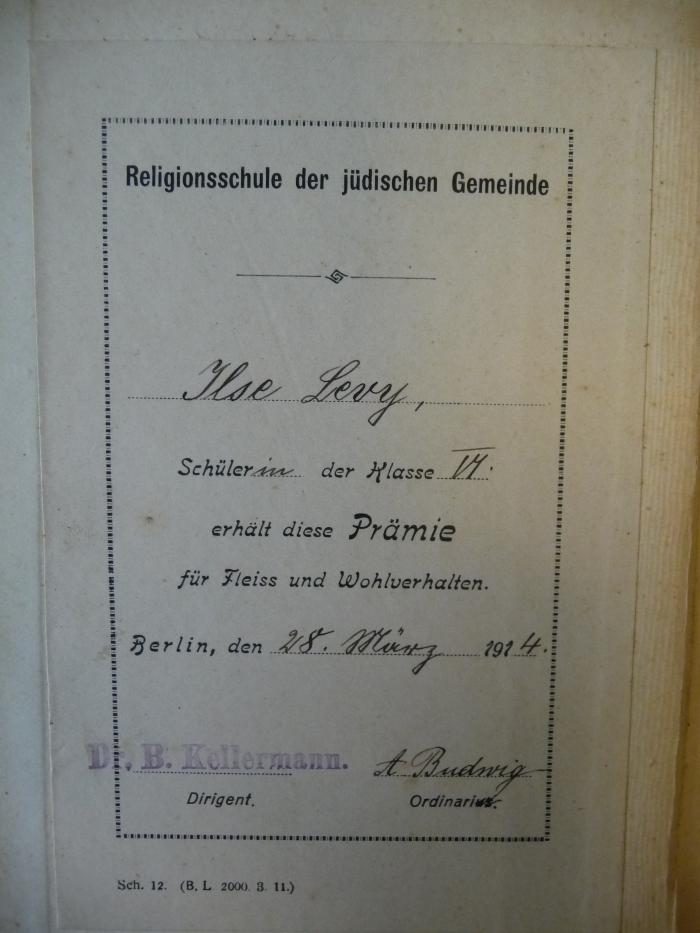 Religionsschule der jüdischen Gemeinde
Ilse Levy,
Schülerin der Klasse VI.
erhält diese Prämie
für Fleiss und Wohlverhalten.
Berlin, den 28. März 1914.
Dr. B. Kellermann. A Budwig
Dirigent. Ordinarius.
Sch. 12. (B. L. 2000. 3. 11.)